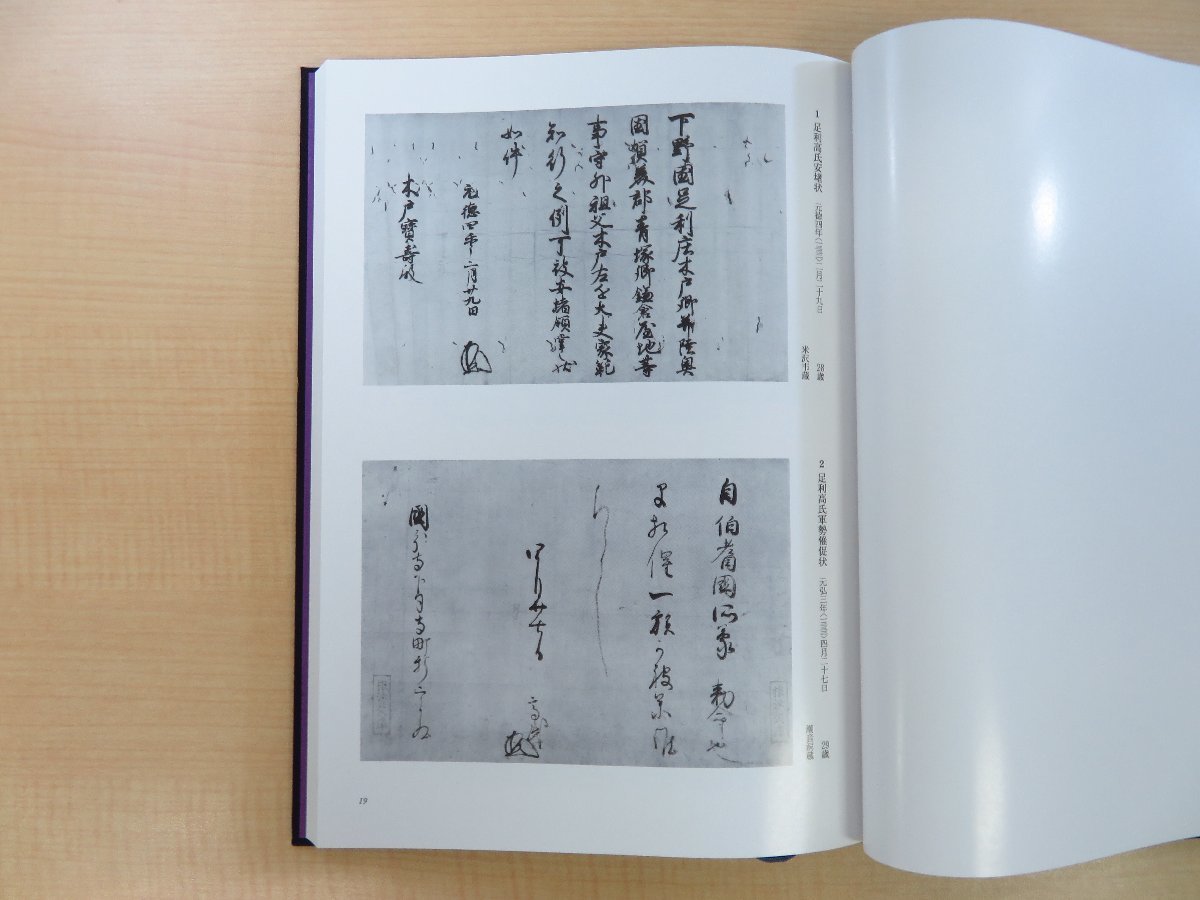 1 足利高氏安堵状 元徳四年(1332)二月二十九日 28歳
米沢市蔵
下野國足利庄木戸郷并陸奥
國賀美郡青塚郷鎌倉屋地等
事守外祖父木戸左近大夫家範
知行之例可被安堵領掌之状
如件
元徳四年二月廿九日
木戸寶壽殿
2 足利高氏軍勢催促状 元弘三年(1333)四月二十七日 29歳
自伯耆國所蒙 勅命也
早相催一族可被
四月廿七日 高氏
19